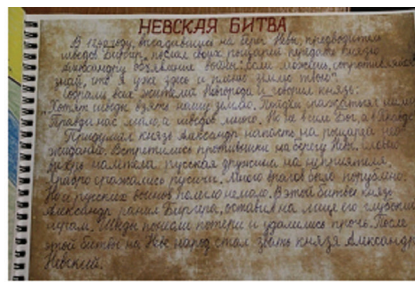 НЕВСКАЯ БИТВА
В 1240 году, высадившись на берег Невы, предводитель
шведов Биргер послал своих рыцарей передать князю
Александру объявление войны: Если можешь, сопротивляйся
знай, что я уже здесь и пленю землю твою"
Собрал всех жителей Новгорода и говорил князь:
Хотят шведы взять нашу землю. Пойдём сражаться с ними
Правда нас мало, а шведов много. Но не в силе Бог, а в Правде
Придумал князь Александр напасть на рыцарей нео-
жиданно. Встретились противники на берегу Невы.
русская дружина на неприятеля.
Храбро сражались русичи. Много врагов было погублено.
Но и русских воинов полегло немало. В этой битве князь
Александр ранил Биргера, оставив на лице его глубокий
шрам. Шведы понесли потери и удалились прочь. После
этой битвы на Неве народ стал звать князя Александр
Невский.